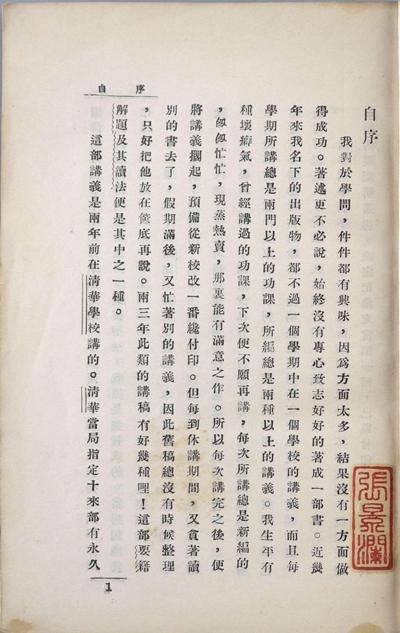 序　自
自序
我對於學問，件件都有興味，因爲方面太多，結果沒有一方面做
得成功。著述更不必說，始終沒有專心致志好好的著成一部書。近幾
年來我名下的出版物，都不過一個學期中在一個學校的講義，而且每
學期所講總是兩門以上的功課，所編總是兩種以上的講義。我生平有
種壞癖氣，曾經講過的功課，下次便不願再講，每次所講總是新編的
，匆匆忙忙，現蒸熱賣，那裏能有滿意之作。所以每次講完之後，便
將講義擱起，預備從新校改一番纔付印。但每到休講期間，又貪著讀
別的書去了，假期滿後，又忙著別的講義，因此舊稿總沒有時候整理
，只好把他放在篋底再說。兩三年此類的講稿有好幾種哩！這部要籍
解題及其讀法便是其中之一種。
這部講義是兩年前在清華學校講的。清華當局指定十來部有永久
1
張景瀾